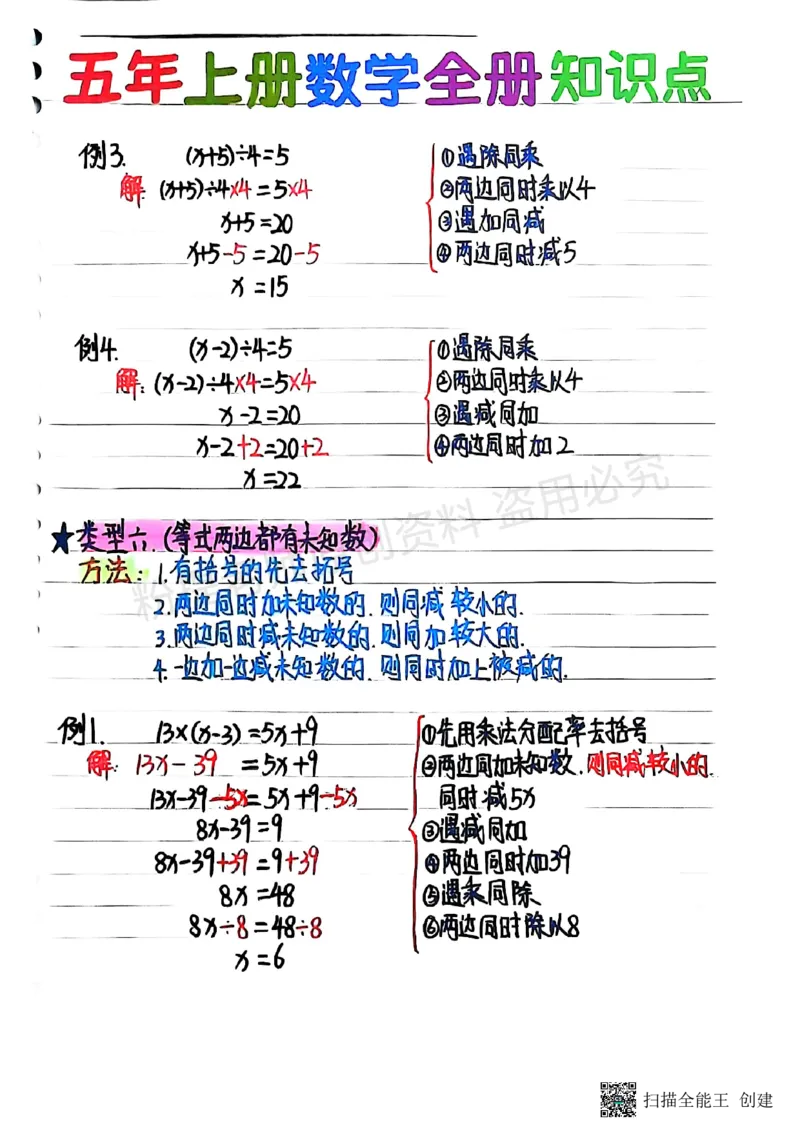 五年上册数学全册知识点
例3. (x+5)÷4=5
解: (x+5)÷4×4=5×4
x+5=20
x+5-5=20-5
x=15
①遇除同乘
②两边同时乘以4
③遇加同减
④两边同时减5
例4. (x-2)÷4=5
解: (x-2)÷4×4=5×4
x-2=20
x-2+2=20+2
x=22
①遇除同乘
②两边同时乘以4
③遇减同加
④两边同时加2
★类型六.(等式两边都有未知数)
方法: 1.有括号的先去括号
2.两边同时加未知数的.则同减较小的.
3.两边同时减未知数的.则同加较大的.
4.一边加一边减未知数的.则同时加上被减的.
例1. 13×(x-3)=5x+9
解: 13x-39=5x+9
13x-39-5x=5x+9-5x
8x-39=9
8x-39+39=9+39
8x=48
8x÷8=48÷8
x=6
①先用乘法分配率去括号
②两边同加未知数.则同减较小的.
同时减5x
③遇减同加
④两边同时加39
⑤遇乘同除
⑥两边同时除以8
创资料 盗用必究
扫描全能王 创建